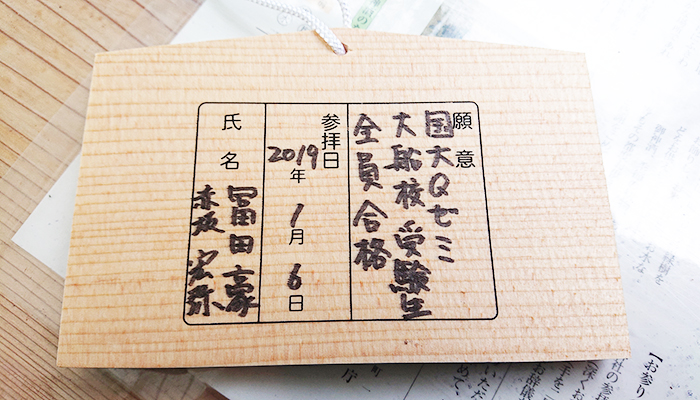 願意
国大Qゼミ
大船校 受験生
全員合格
参拝日
2019年 1月 6日
氏名
冨田 豪
赤坂 宏弥
【お参り